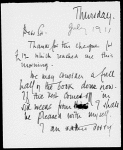 Thursday.
July 1911
Dear Co.
Thanks for the cheque for
£12 which reached me this
morning.
We may consider a full
half of the book done now.
I the rest comes off in
weeks from I shall
be pleased with myself.
I am rather sorry